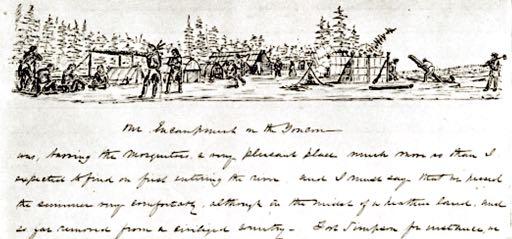 Our Encampment on the Youcon
was, barring the Mosquitoes, a very pleasant place much more so than I
expected to find on first entering the river and I must say that we passed
the summer very comfortably, although in the midst of a heathen land, and
so far removed from a civilized country - Fort Simpson for instance, we